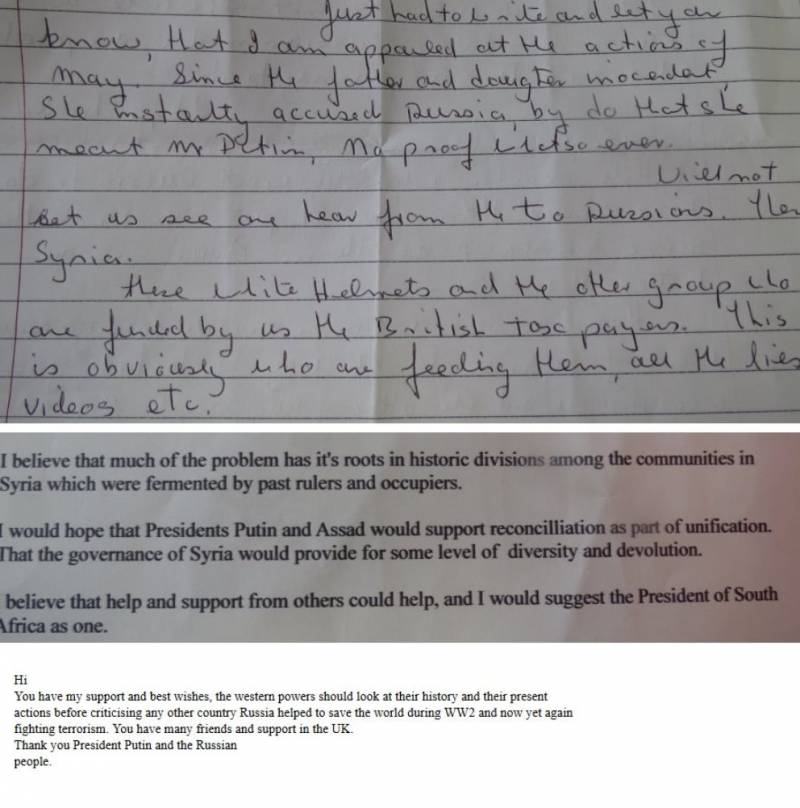 Just had to write and let you
know, that I am appauled at the actions of
May. Since the father and daugter
She instantly accused Russia, by do that she
meant Mr Putin, No proof whatso ever.
Will not
let us see one hear from the to Russians. Then
Syria.
these White Helmets and the other group who
are funded by us the British tax payers. This
is obviously who are feeding them, all the lies
videos etc.
I believe that much of the problem has it's roots in historic divisions among the communities in
Syria which were fermented by past rulers and occupiers.
I would hope that Presidents Putin and Assad would support reconcilliation as part of unification.
That the governance of Syria would provide for some level of diversity and devolution.
believe that help and support from others could help, and I would suggest the President of South
Africa as one.
Hi
You have my support and best wishes, the western powers should look at their history and their present
actions before criticising any other country Russia helped to save the world during WW2 and now yet again
fighting terrorism. You have many friends and support in the UK.
Thank you President Putin and the Russian
people.